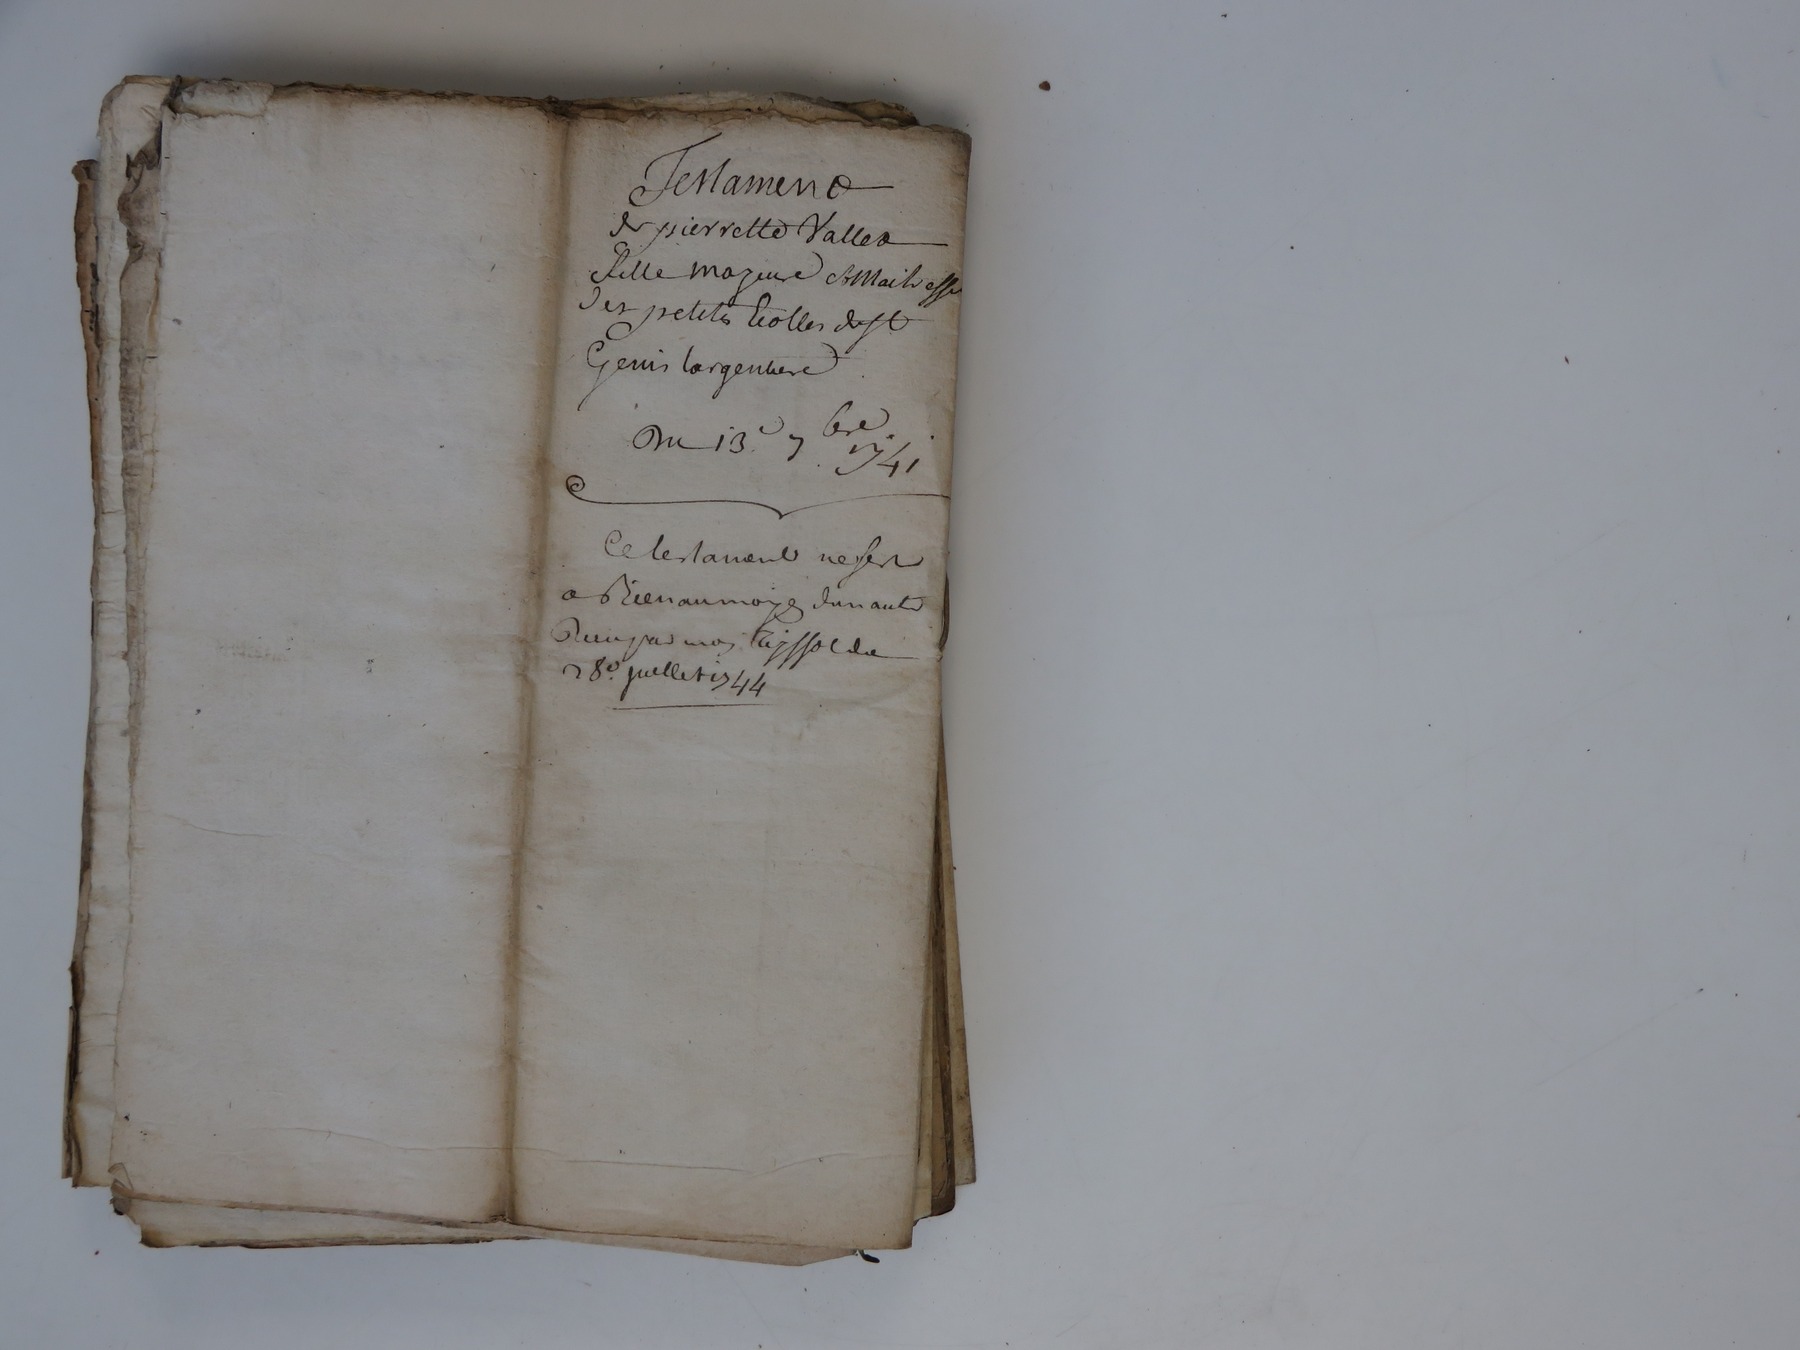 Testament
de pierrette Vallet
fille majeure et Maitresse
des petites Ecolles de st
Genis largentiere
Du 13e 7bre 1741
Ce testament ne sert
a Rien au moyen dun autre
Receu par moy du
28e. juillet 1744